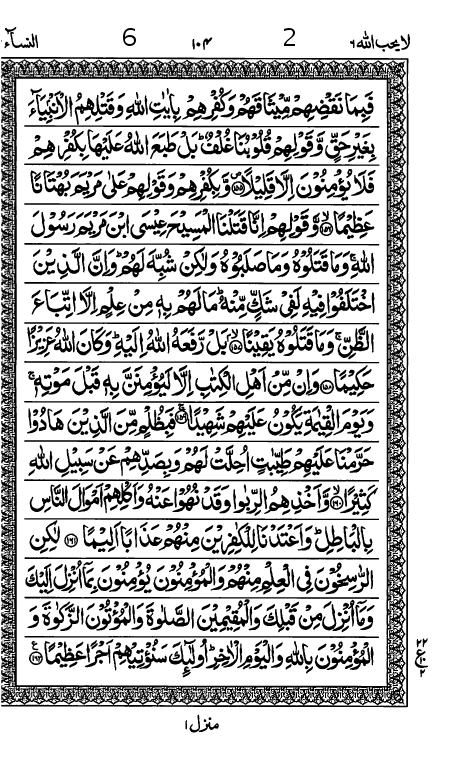 لایحب الله ٦ 2 ١٠٤ 6 النسآء
فَبِمَا نَقْضِهِمْ مِّيْثَاقَهُمْ وَكُفْرِهِمْ بِاٰيٰتِ اللّٰهِ وَقَتْلِهِمُ الْاَنْۢبِيَآءَ
بِغَيْرِ حَقٍّ وَّقَوْلِهِمْ قُلُوْبُنَا غُلْفٌ ؕ بَلْ طَبَعَ اللّٰهُ عَلَيْهَا بِكُفْرِهِمْ
فَلَا يُؤْمِنُوْنَ اِلَّا قَلِيْلًا ﴿١٥٥﴾ وَّبِكُفْرِهِمْ وَقَوْلِهِمْ عَلٰى مَرْيَمَ بُهْتَانًا
عَظِيْمًا ﴿١٥٦﴾ وَّقَوْلِهِمْ اِنَّا قَتَلْنَا الْمَسِيْحَ عِيْسَى ابْنَ مَرْيَمَ رَسُوْلَ
اللّٰهِ ۚ وَمَا قَتَلُوْهُ وَمَا صَلَبُوْهُ وَلٰكِنْ شُبِّهَ لَهُمْ ؕ وَاِنَّ الَّذِيْنَ
اخْتَلَفُوْا فِيْهِ لَفِيْ شَكٍّ مِّنْهُ ؕ مَا لَهُمْ بِهٖ مِنْ عِلْمٍ اِلَّا اتِّبَاعَ
الظَّنِّ ۚ وَمَا قَتَلُوْهُ يَقِيْنًا ﴿١٥٧﴾ بَلْ رَّفَعَهُ اللّٰهُ اِلَيْهِ ؕ وَكَانَ اللّٰهُ عَزِيْزًا
حَكِيْمًا ﴿١٥٨﴾ وَاِنْ مِّنْ اَهْلِ الْكِتٰبِ اِلَّا لَيُؤْمِنَنَّ بِهٖ قَبْلَ مَوْتِهٖ ۚ
وَيَوْمَ الْقِيٰمَةِ يَكُوْنُ عَلَيْهِمْ شَهِيْدًا ﴿١٥٩﴾ فَبِظُلْمٍ مِّنَ الَّذِيْنَ هَادُوْا
حَرَّمْنَا عَلَيْهِمْ طَيِّبٰتٍ اُحِلَّتْ لَهُمْ وَبِصَدِّهِمْ عَنْ سَبِيْلِ اللّٰهِ
كَثِيْرًا ﴿١٦٠﴾ وَّاَخْذِهِمُ الرِّبٰوا وَقَدْ نُهُوْا عَنْهُ وَاَكْلِهِمْ اَمْوَالَ النَّاسِ
بِالْبَاطِلِ ؕ وَاَعْتَدْنَا لِلْكٰفِرِيْنَ مِنْهُمْ عَذَابًا اَلِيْمًا ﴿١٦١﴾ لٰكِنِ
الرّٰسِخُوْنَ فِي الْعِلْمِ مِنْهُمْ وَالْمُؤْمِنُوْنَ يُؤْمِنُوْنَ بِمَآ اُنْزِلَ اِلَيْكَ
وَمَآ اُنْزِلَ مِنْ قَبْلِكَ وَالْمُقِيْمِيْنَ الصَّلٰوةَ وَالْمُؤْتُوْنَ الزَّكٰوةَ وَ
الْمُؤْمِنُوْنَ بِاللّٰهِ وَالْيَوْمِ الْاٰخِرِ ؕ اُولٰٓئِكَ سَنُؤْتِيْهِمْ اَجْرًا عَظِيْمًا ﴿١٦٢﴾
٢٢
ع
٢
منزل ١